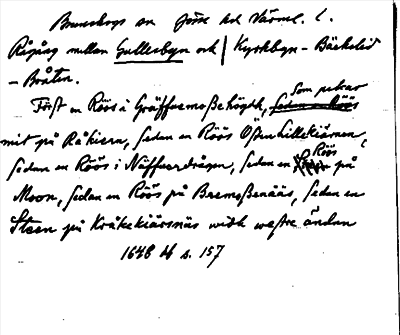 Brunskogs sn Jösse hd Värml. l.
Rågång mellan Gullerbyn och Kyrkbyn - Bäckelid
- Bråten.
Först en Röös i Gräffuemoßehögth, som pekar
mit på Råkiern, sedan en Röös Östen Lillekiärnen,
sedan en Röös i Näffuerdrågen, sedan en Röös på
Moon, sedan en Röös på Bremoßenääs, sedan en
Steen på Kråkekiärsnäs widh westre ändan
1648 Hf s. 157